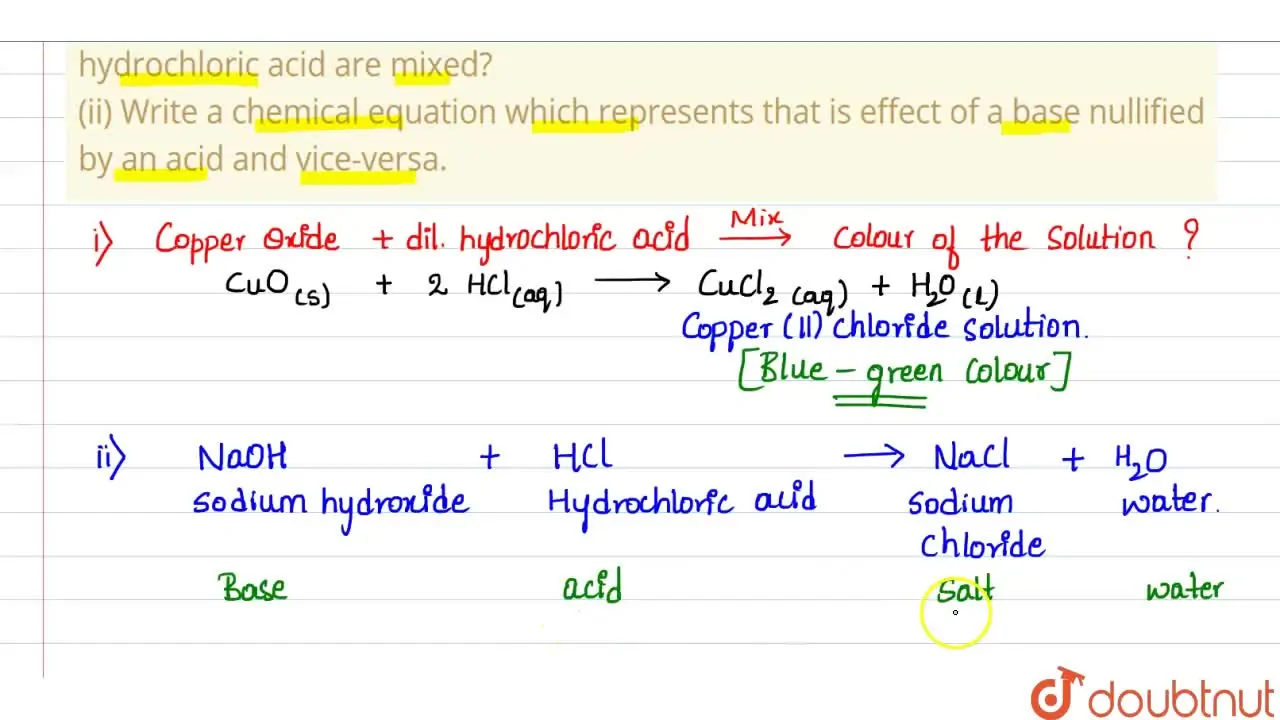 hydrochloric acid are mixed?
(ii) Write a chemical equation which represents that is effect of a base nullified
by an acid and vice-versa.
i) Copper Oxide + dil. hydrochloric acid Mix → Colour of the Solution ?
CuO(s) + 2 HCl(aq) → CuCl₂(aq) + H₂O(l)
Copper (II) Chloride Solution.
[Blue - green Colour]
ii) NaOH + HCl → NaCl + H₂O
Sodium hydroxide Hydrochloric acid Sodium water.
Chloride
Base acid Salt water
doubtnut